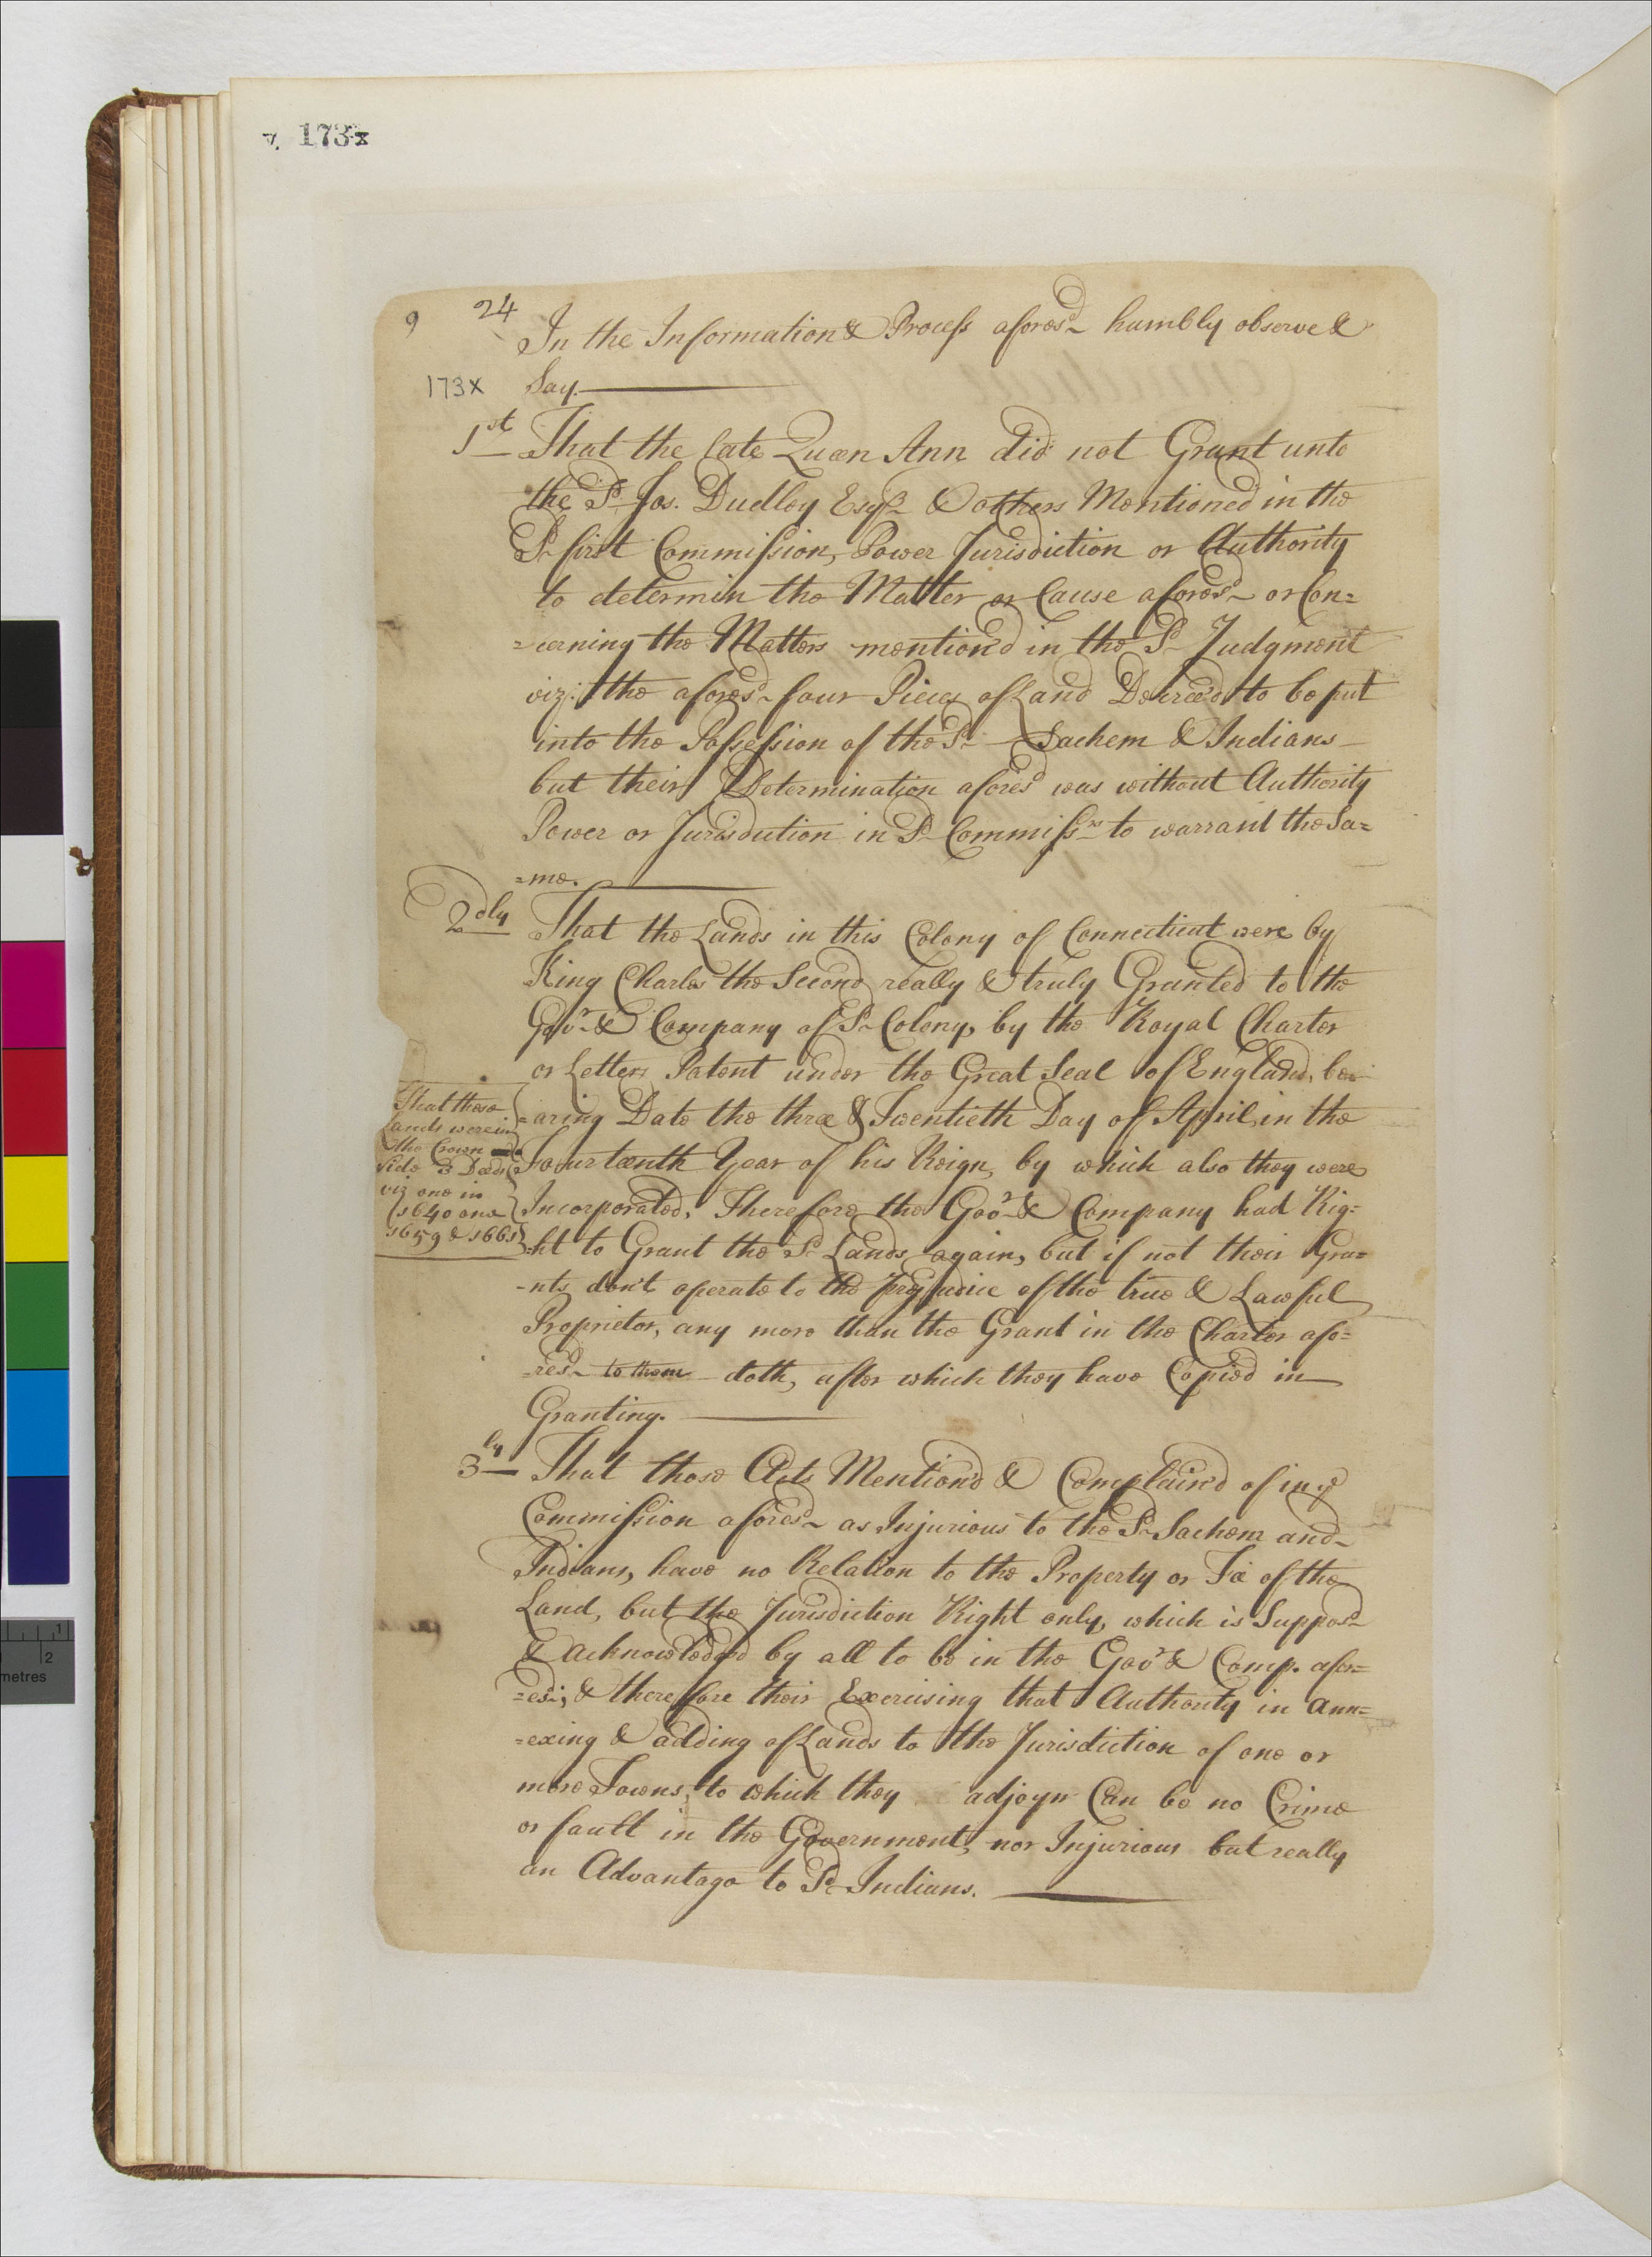 v. 173x
9 24
In the Information & Process afores.d humbly observe &
173x Say.
1st That the late Queen Ann did not Grant unto
the Sd. Jos. Dudley Esqr. & others Mentioned in the
Sd. first Commission, Power Jurisdiction or Authority
to determin the Matter or Cause afores.d or Con=
=cerning the Matters mention'd in the Sd. Judgment
viz: the afores.d four Pieces of Land Decreed to be put
into the Possession of the Sd. Sachem & Indians
but their Determination afores.d was without Authority
Power or Jurisdiction in Sd. Commissrs. to warrant the Sa=
=me.
2dly That the Lands in this Colony of Connecticut were by
King Charles the Second really & truly Granted to the
Govr. & Company of Sd. Colony, by the Royal Charter
or Letters Patent under the Great Seal of England, be=
=aring Date the three & Twentieth Day of April, in the
Fourteenth Year of his Reign, by which also they were
Incorporated, Therefore the Govr. & Company had Rig=
=ht to Grant the Sd. Lands again, but if not their Gra=
=nts don't operate to the prejudice of the true & Lawful
Proprietor, any more than the Grant in the Charter afo=
=resd. to them doth, after which they have Copied in
Granting.
That these
Lands were in
the Crown
vide 3 Deeds
viz one in
1640 one
1659 & 1661
3ly That those Acts Mention'd & Complain'd of in ye
Commission afores.d as Injurious to the Sd. Sachem and
Indians, have no Relation to the Property or Fee of the
Land, but the Jurisdiction Right only, which is Supposd.
& acknowledged by all to be in the Govr. & Comp. afor=
=esd; & therefore their Exercising that Authority in ann=
=exing & adding of Lands to the Jurisdiction of one or
more Towns, to which they adjoyn Can be no Crime
or fault in the Government, nor Injurious but really
an Advantage to Sd. Indians.
1
2
metres